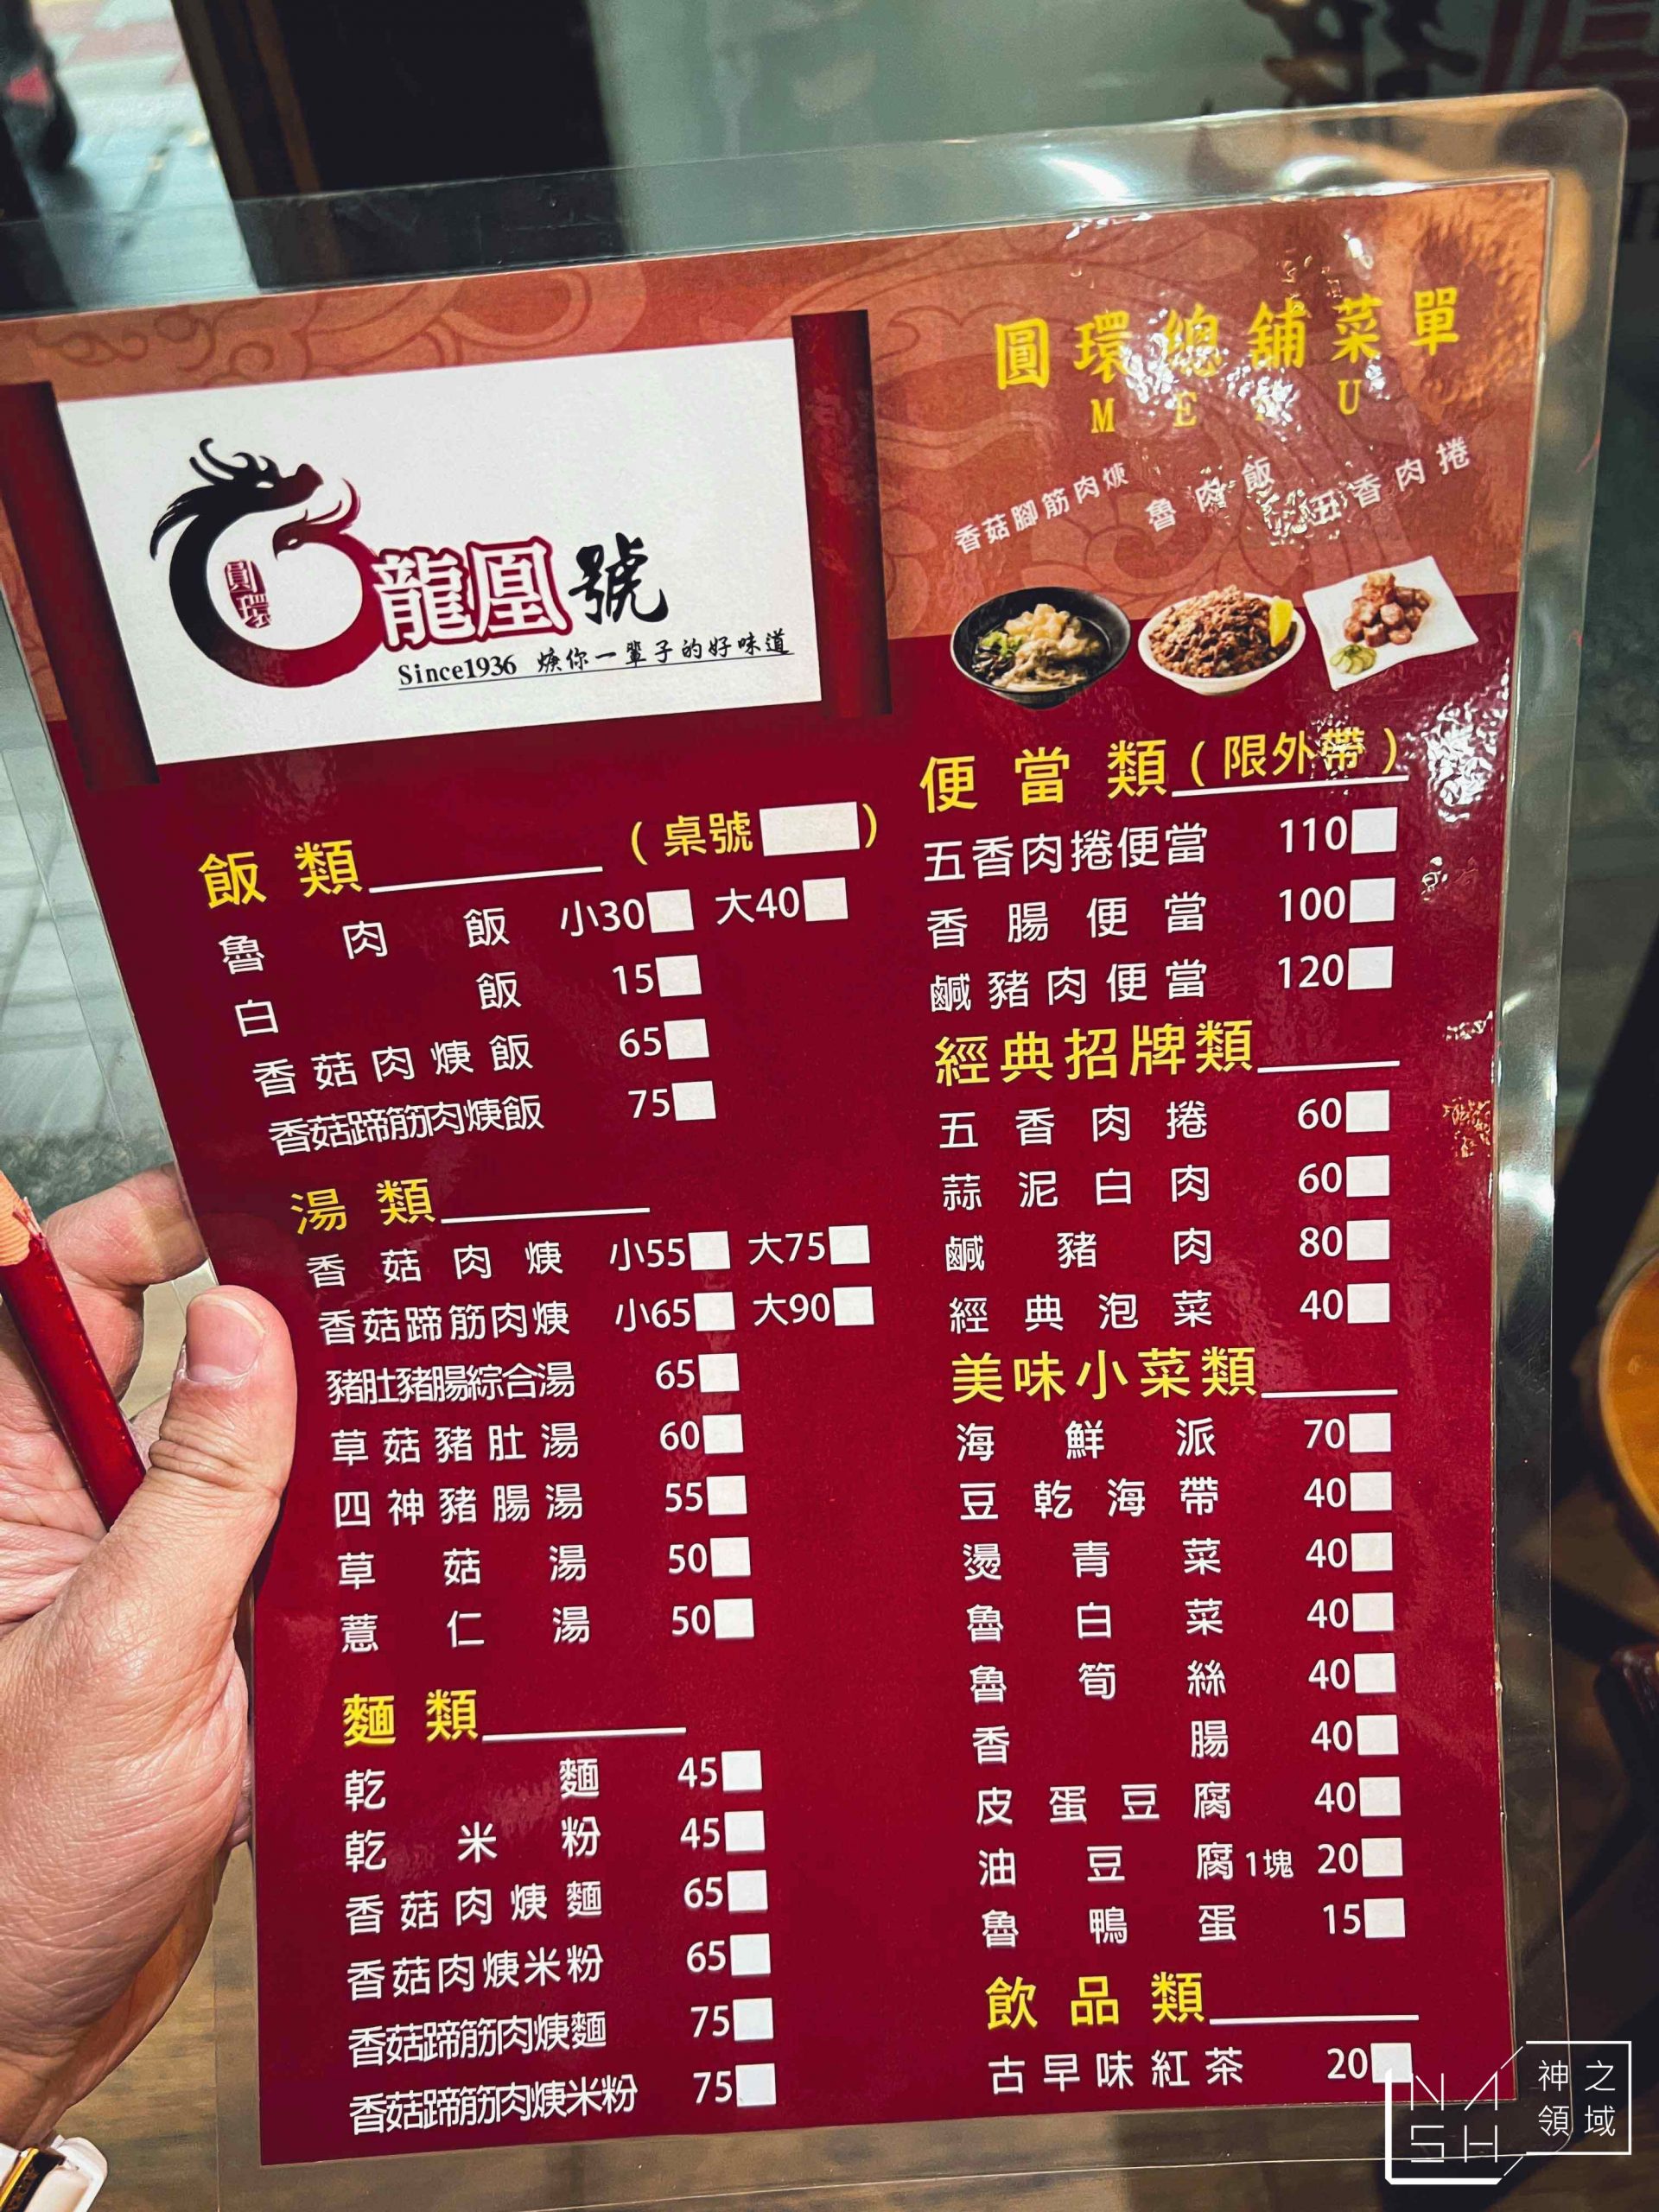 圓環總舖菜單
M E U
香菇腳筋肉焿
魯肉飯
五香肉捲
圓環
龍凰號
Since1936 焿你一輩子的好味道
飯類 (桌號 )
魯肉飯 小30 大40
白飯 15
香菇肉焿飯 65
香菇蹄筋肉焿飯 75
湯類
香菇肉焿 小55 大75
香菇蹄筋肉焿 小65 大90
豬肚豬腸綜合湯 65
草菇豬肚湯 60
四神豬腸湯 55
草菇湯 50
薏仁湯 50
麵類
乾麵 45
乾米粉 45
香菇肉焿麵 65
香菇肉焿米粉 65
香菇蹄筋肉焿麵 75
香菇蹄筋肉焿米粉 75
便當類(限外帶)
五香肉捲便當 110
香腸便當 100
鹹豬肉便當 120
經典招牌類
五香肉捲 60
蒜泥白肉 60
鹹豬肉 80
經典泡菜 40
美味小菜類
海鮮派 70
豆乾海帶 40
燙青菜 40
魯白菜 40
魯筍絲 40
香腸 40
皮蛋豆腐 40
油豆腐1塊 20
魯鴨蛋 15
飲品類
古早味紅茶 20
NASH
神之領域